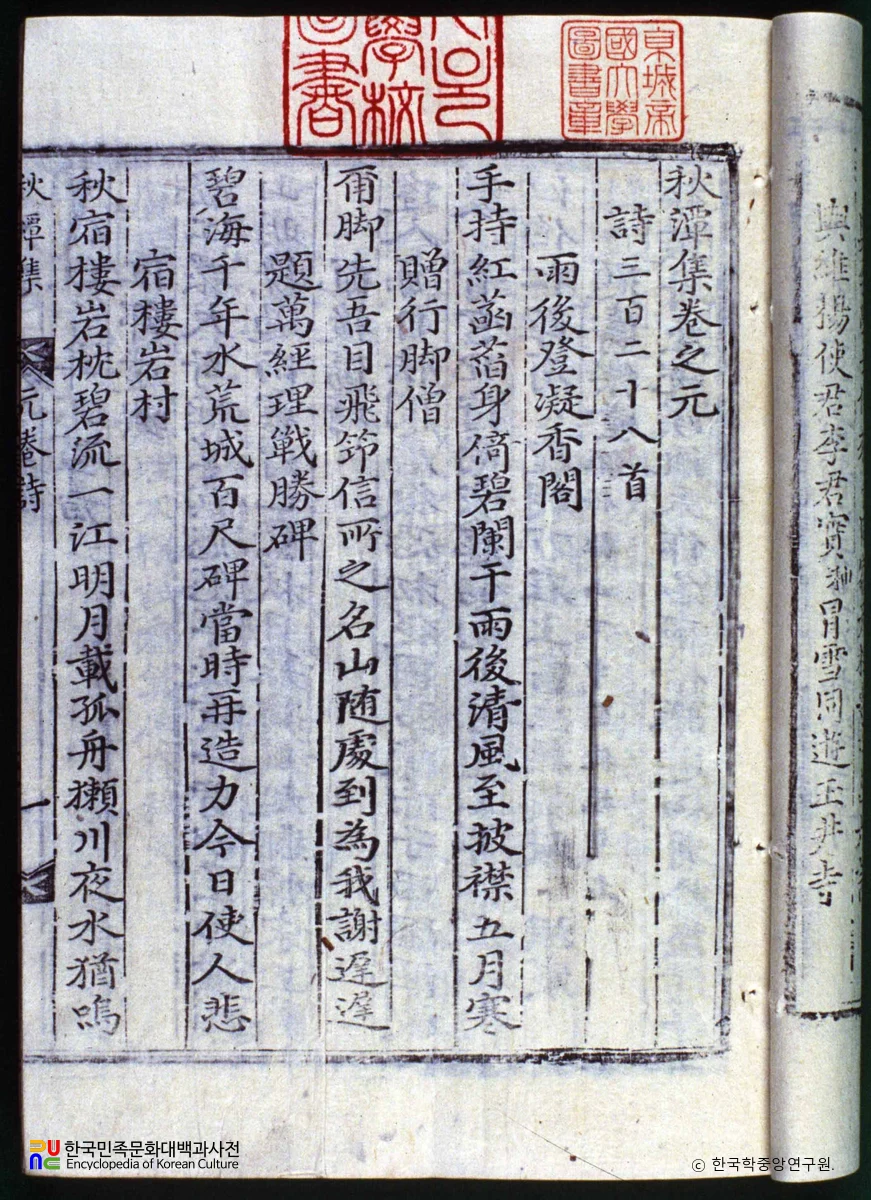 秋潭集卷之元
詩三百二十八首
雨後登凝香閣
手持紅菡萏身倚碧闌干雨後清風至披襟五月寒
贈行脚僧
爾脚先吾目飛筇信所之名山随處到為我謝遲遲
題萬經理戰勝碑
碧海千年水荒城百尺碑當時再造力今日使人悲
宿樓岩村
秋宿樓岩枕碧流一江明月載孤舟獺川夜水猶鳴
秋潭集 元卷 詩 一
與維揚使君李君實冒雪同遊玉井寺
東城帝國大學圖書章
學校
圖書
한국민족문화대백과사전
Encyclopedia of Korean Culture
© 한국학중앙연구원.